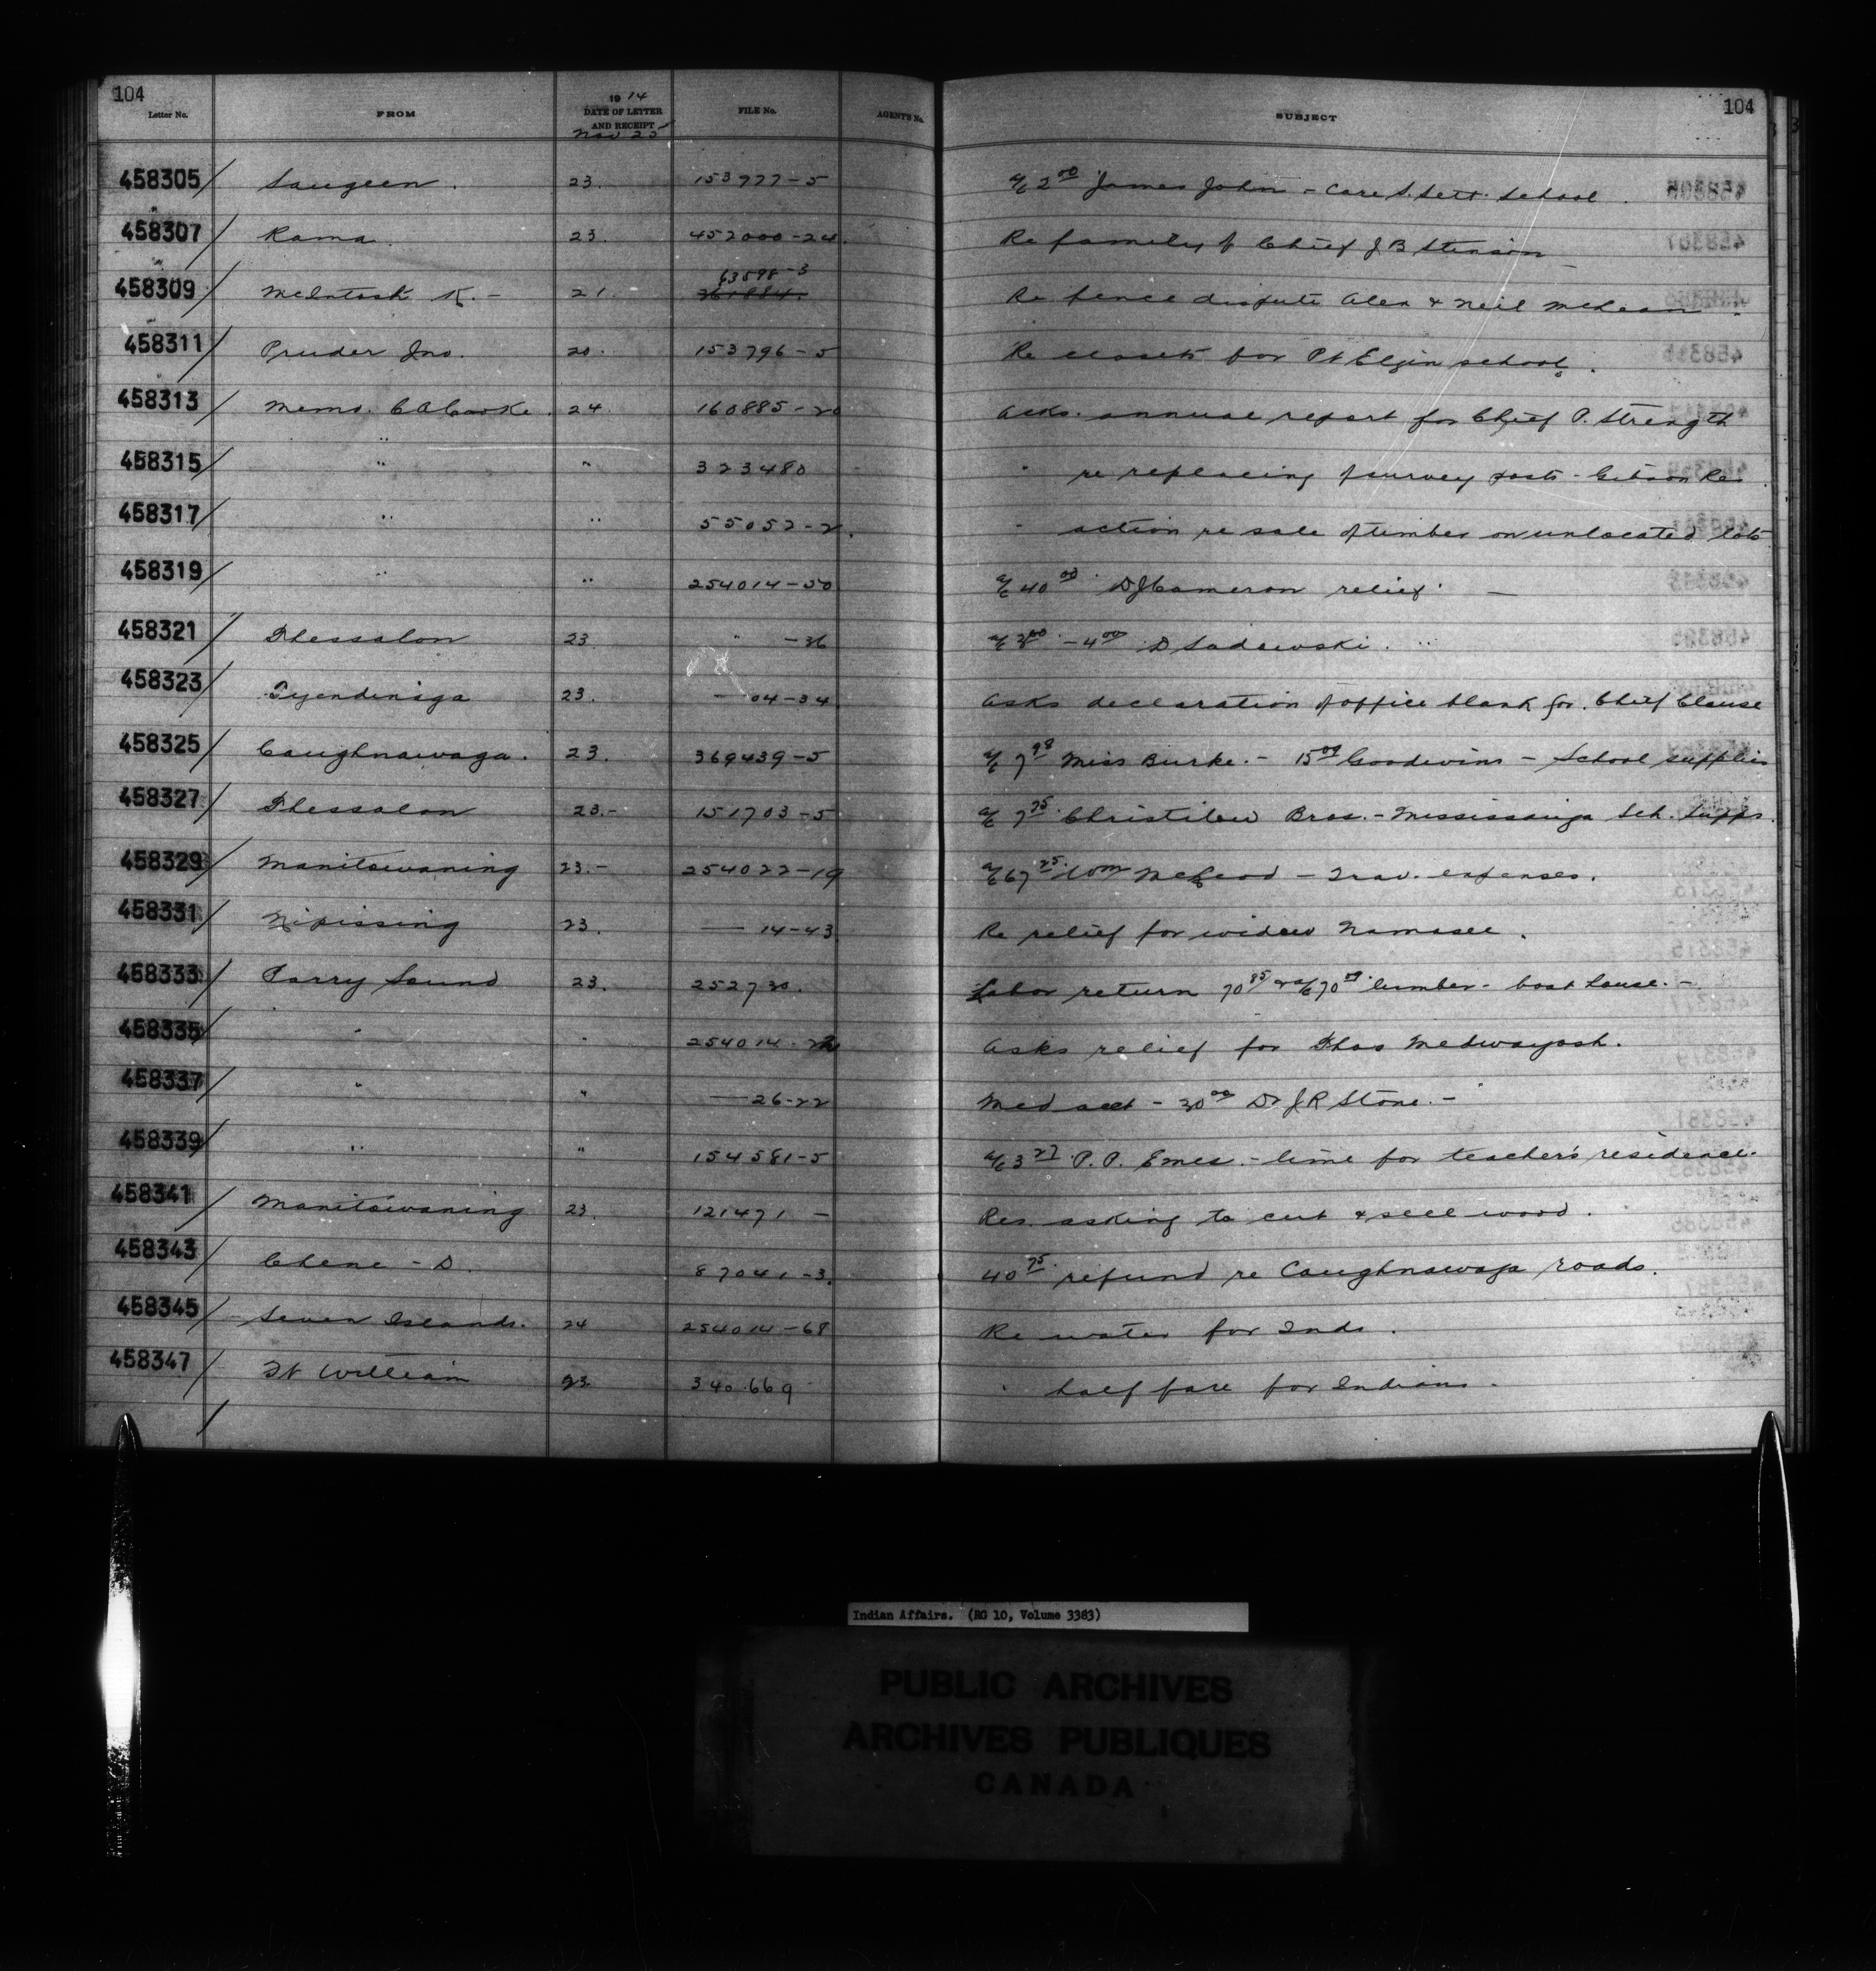 104
104
Letter No. FROM 1914 DATE OF LETTER AND RECEIPT FILE No. AGENTS No. SUBJECT
Nov 25
458305 Saugeen. 23. 153977-5 a/c 2 00 James John - Care S. Sett. School.
458307 Rama. 23. 452000-24. Re family of Chief J B Stinson
63598-3
458309 McIntosh K. - 21. 261884. Re fence dispute Alex & Neil McLean
458311 Pruder Jno. 20. 153796-5 Re closets for Pt Elgin school.
458313 Memo. C A Cooke. 24. 160885-20 Asks annual report for Chief P. Strength
458315 " " 323480 " re replacing of survey posts - Gibson Res
458317 " " 55052-2. " action re sale of timber on unlocated lots
458319 " " 254014-50 a/c 40 00 D J Cameron relief. -
458321 Thessalon 23 " -36 - 4 00 D Sadowski. "
458323 Tyendinaga 23. — 04-34 Asks declaration of office blank for Chief Clause
458325 Caughnawaga. 23. 369439-5 a/c 7 98 Miss Burke. - 15 00 Goodwins - School supplies
458327 Thessalon 23.- 151703-5 a/c 7 75 Bros. - Mississauga Sch. Supps.
458329 Manitowaning 23.- 254022-19 a/c 67 25 Wm McLeod - Trav. expenses.
458331 Nipissing 23. — 14-43 Re relief for widow Namasee.
458333 Parry Sound 23. 252730. Labor return 70 85 & a/c 70 00 lumber - boat house. -
458335 " " 254014- Asks relief for Thos Medwayosh.
458337 " " — 26-22 Med acct - 30 00 Dr J R Stone. -
458339 " " 154581-5 a/c 3 27 P. P. Emes. - lime for teacher's residence.
458341 Manitowaning 23. 121471 - Res. asking to cut & sell wood.
458343 Chene - D. 87041-3. 40 75 refund re Caughnawaga roads.
458345 Seven Islands. 24 254014-68 Re water for Inds.
458347 Ft William 23 340.669 " half fare for Indians.
Indian Affairs. (RG 10, Volume 3383)
PUBLIC ARCHIVES
ARCHIVES PUBLIQUES
CANADA